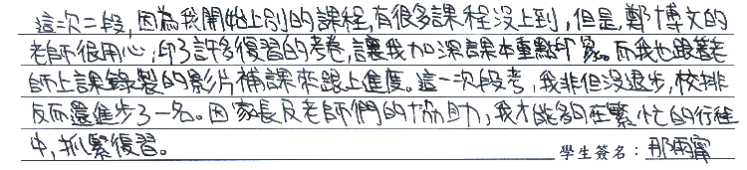 這次二段,因為我開始上別的課程,有很多課程沒上到,但是,鄭博文的
老師很用心,印了許多復習的考卷,讓我加深課本重點印象。而我也跟著老
師上課錄製的影片補課來跟上進度。這一次段考,我非但沒退步,校排
反而還進步了一名。因家長及老師們的協助,我才能夠在繁忙的行程
中,抓緊復習。
學生簽名:那雨甯